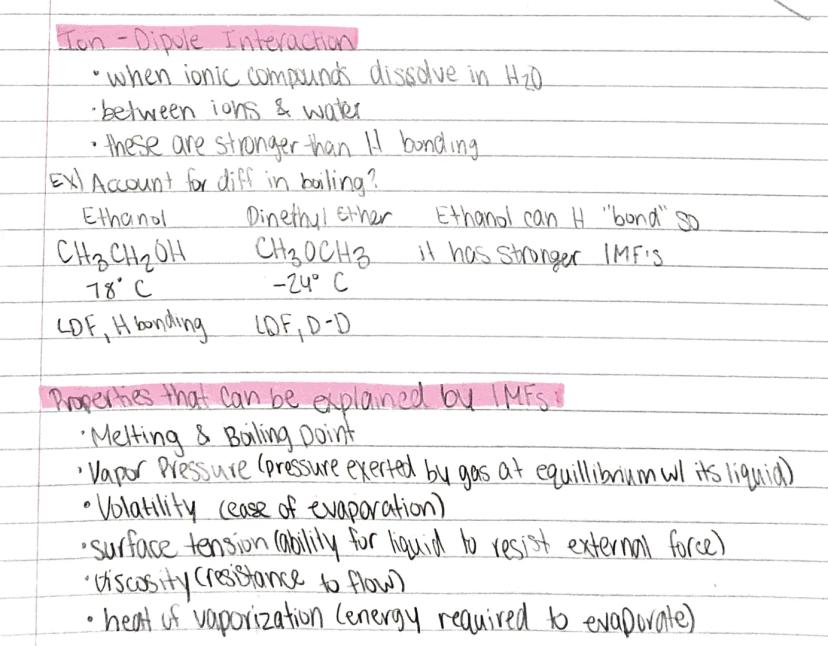 Ion - Dipole Interaction
• when ionic compounds dissolve in H₂O
• between ions & water
• these are stronger than H bonding
EX) Account for diff in boiling?
Ethanol Dinethyl Ether Ethanol can H "bond" so
CH₃CH₂OH CH₃OCH₃ it has stronger IMF's
78° C -24° C
LDF, H bonding LDF, D-D
Properties that can be explained by IMFs:
• Melting & Boiling Point
• Vapor Pressure (pressure exerted by gas at equillibrium w/ its liquid)
• Volatility (ease of evaporation)
• surface tension (ability for liquid to resist external force)
• viscosity (resistance to flow)
• heat of vaporization (energy required to evaporate)